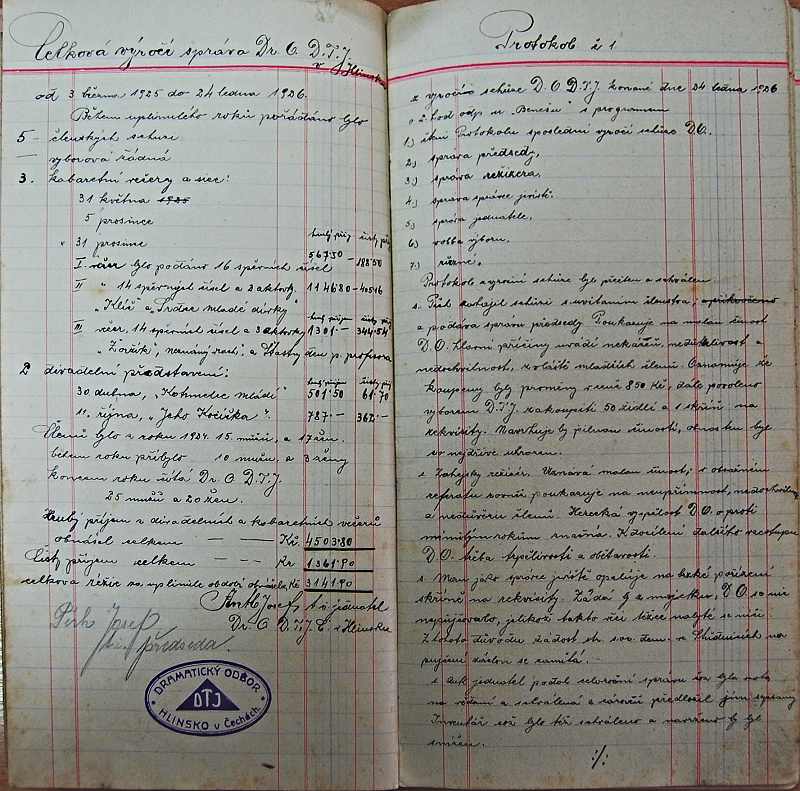 Celková výročí správa Dr. O. D.T.J.
v Hlinsku
od 3 března 1925 do 24 ledna 1926.
Během uplynulého roku pořádáno bylo
5 - členských schuze
— vyborova žádná
3. kabaretní večery a sice:
31 května 1925
5 prosince
" 31 prosince
hrubý příj čistý
567·50 - 188·50
I. večer bylo podáno 16 spěvních čisel
II " 14 spěvných čisel a 2 aktovky. 1146·80 - 405·16
"Klíč" a "Srdce mladé dívky"
hrubý příjem čistý
III večer, 14 spěvních čisel a 3 aktovky 1301·- 344·54
"Zoufalk", neznámý a Šťastny den p. profesora
2 divadelní představení:
hrubý příjem čistý
30 dubna, "Komedie mládí" 501·50 61·70
11. října, "Jeho Kočička". 787·- 362·-
Členů bylo z roku 1924. 15 mužů, a 17 žen.
během roku přibylo 10 mužu, a 3 ženy
koncem roku čítá Dr. O. D.T.J.
25 mužů a 20 žen.
Hrubý příjem z divadelních a kabaretních večerů
obnášel celkem — — Kč. 4503·80
čistý příjem celkem — — Kč 1361·90
celkova režie za uplinule období obnáš Kč 3141·90
Ant. Josef t. č. jednatel
Dr. O D.T.J. Č. v Hlinsku
Pich Josef
předseda.
DRAMATICKÝ ODBOR
DTJ
HLINSKO v Čechách.
Protokol č 1.
z výroční schůze D.O.D.T.J. konané dne 24 ledna 1926
o 2. hod odp. u "Benešu" s programem
1.) čtení Protokolu z poslední výročí schůze D.O.
2.) správa předsedy,
3.) správa režiséra,
4.) správa správce jeviště.
5.) správa jednatele,
6.) volba výboru,
7.) různé,
Protokol z výroční schůze byl přečten a schválen.
s. Pich zahajil schůzi s uvítáním členstva;
a podává správu předsedy. Poukazuje na malou činost
D.O. hlavní příčiny uvádí nekázeň, nedbalivost a
nedochvilnost, zvláště mladších členů. Oznamuje že
koupeny byly proměny v ceně 850 Kč, dále povoleno
vyborem D.T.J. zakoupiti 50 židlí a 1 skříň na
rekvisity. Navrhuje by pilnou činností, obnos ten byl
co nejdříve uhrazen.
s. Zahejský režisér. Uznává malou činost; v obsáhlém
referatu rovněž poukazuje na neupřímnost, nedochvilnost
a nedůvěru členů. Herecká vyspělost D.O. oproti
minulým rokům značna. K docílení dalšího vzestupu
D.O. třeba trpělivosti a obětavosti.
s. jako správce jeviště apeluje na brzké pořízení
skříně na rekvisity. Žádá by z majetku D.O. se nic
nepujčovalo, jelikož takto věci těžce nabyté se ničí
Z tohoto důvodu žádost str. soc. dem. ve Studnicích na
pujčení záslon se zamítá.
s. Ant. jednatel podal celoroční správu jež byla vzata
na vědomí a schválena a zároveň předložil jím sepsaný
Inventář což bylo též schváleno a navrženo by byl
smířen.
:/: